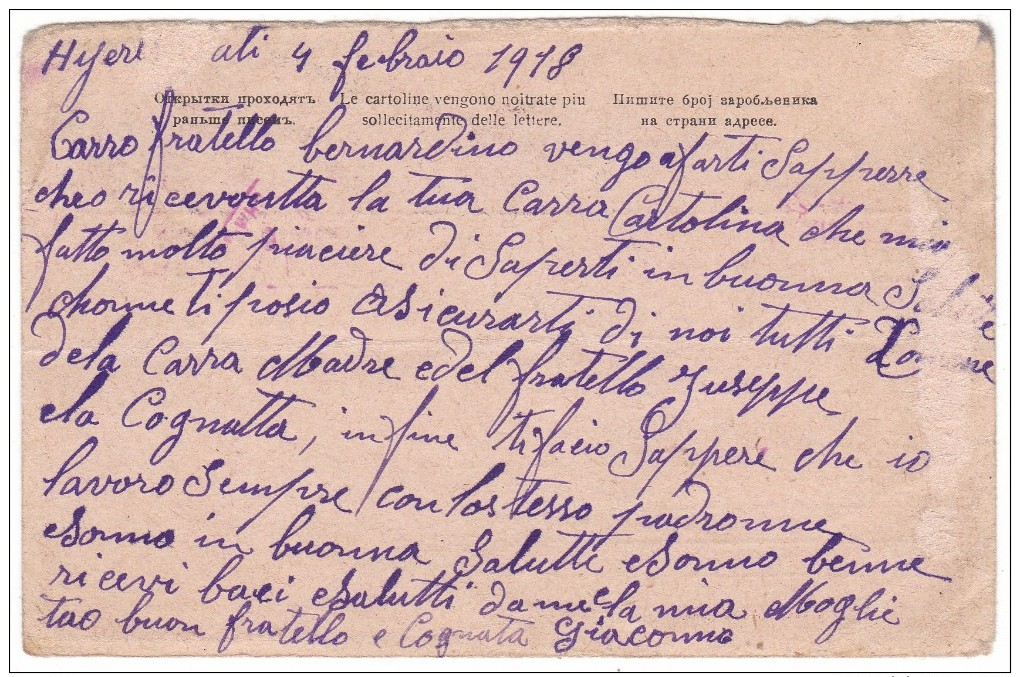 Hyer ati 4 febraio 1918
Открытки проходятъ Le cartoline vengono noitrate piu Пишите број заробљеника
раньше писемъ. sollecitamente delle lettere. на страни адресе.
Carro fratello bernardino vengo a farti Sapperre
che o ricevoutta la tua Carra Cartolina che mia
fatto molto piaciere di Saperti in buonna
chome ti posio asicurarti di noi tutti
dela Carra Madre e del fratello Juseppe
e la Cognatta, in fine ti facio Sappere che io
lavoro Sempre con lostesso padronne
e Sonno in buonna Salutte e Sonno benne
ricevi baci e Salutti da me e la mia Moglie
tao buon fratello e Cognata Giacomo